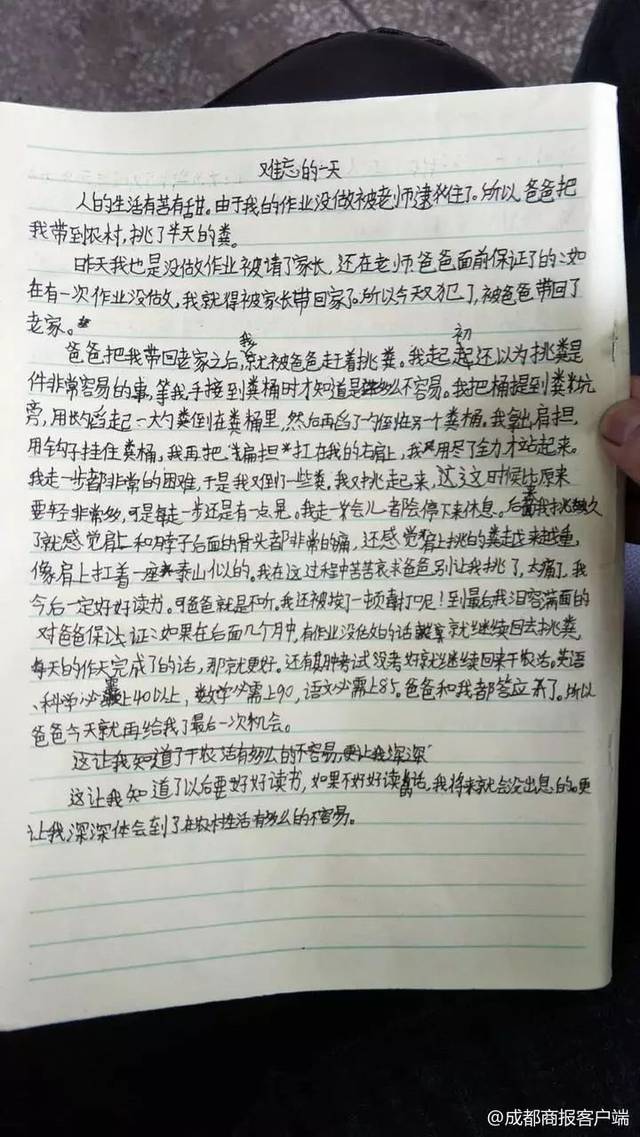 难忘的一天
人的生活有苦有甜。由于我的作业没做被老师逮住了。所以爸爸把
我带到农村,挑了半天的粪。
昨天我也是没做作业被请了家长,还在老师爸爸面前保证了的:如
在有一次作业没做,我就得被家长带回家了。所以今天又犯了,被爸爸带回了
老家。
爸爸把我带回老家之后,我就被爸爸赶着挑粪。我起初还以为挑粪是
件非常容易的事,等我手接到粪桶时才知道是多么不容易。我把桶提到粪坑
旁,用长勺舀起一大勺粪倒在粪桶里,然后再舀了一勺倒在另一个粪桶。我拿出肩担,
用钩子挂住粪桶,我再把扁担扛在我的右肩上,我用尽了全力才站起来。
我走一步都非常的困难,于是我又倒了一些粪。我又挑起来,这次的时候比原来
要轻非常多,可是每走一步还是有一点晃。我走一会儿都会停下来休息。后面我挑久
了就感觉肩上和脖子后面的骨头都非常的痛,还感觉肩上挑的粪越来越重,
像肩上扛着一座泰山似的。我在这过程中苦苦哀求爸爸别让我挑了,太痛了,我
今后一定好好读书。可爸爸就是不听。我还被挨了一顿毒打呢!到最后我泪容满面的
对爸爸保证:如果在后面几个月中,有作业没做的话就继续回去挑粪,
每天的作天完成了的话,那就更好。还有期中考试没考好就继续回来干农活。英语
、科学必需上40以上,数学必需上90,语文必需上85。爸爸和我都答应了。所以
爸爸今天就再给我了最后一次机会。
这让我知道了干农活有多么的不容易,更让我深深
这让我知道了以后要好好读书,如果不好好读的话,我将来就会没出息的。更
让我深深体会到了在农村生活有多么的不容易。
@成都商报客户端